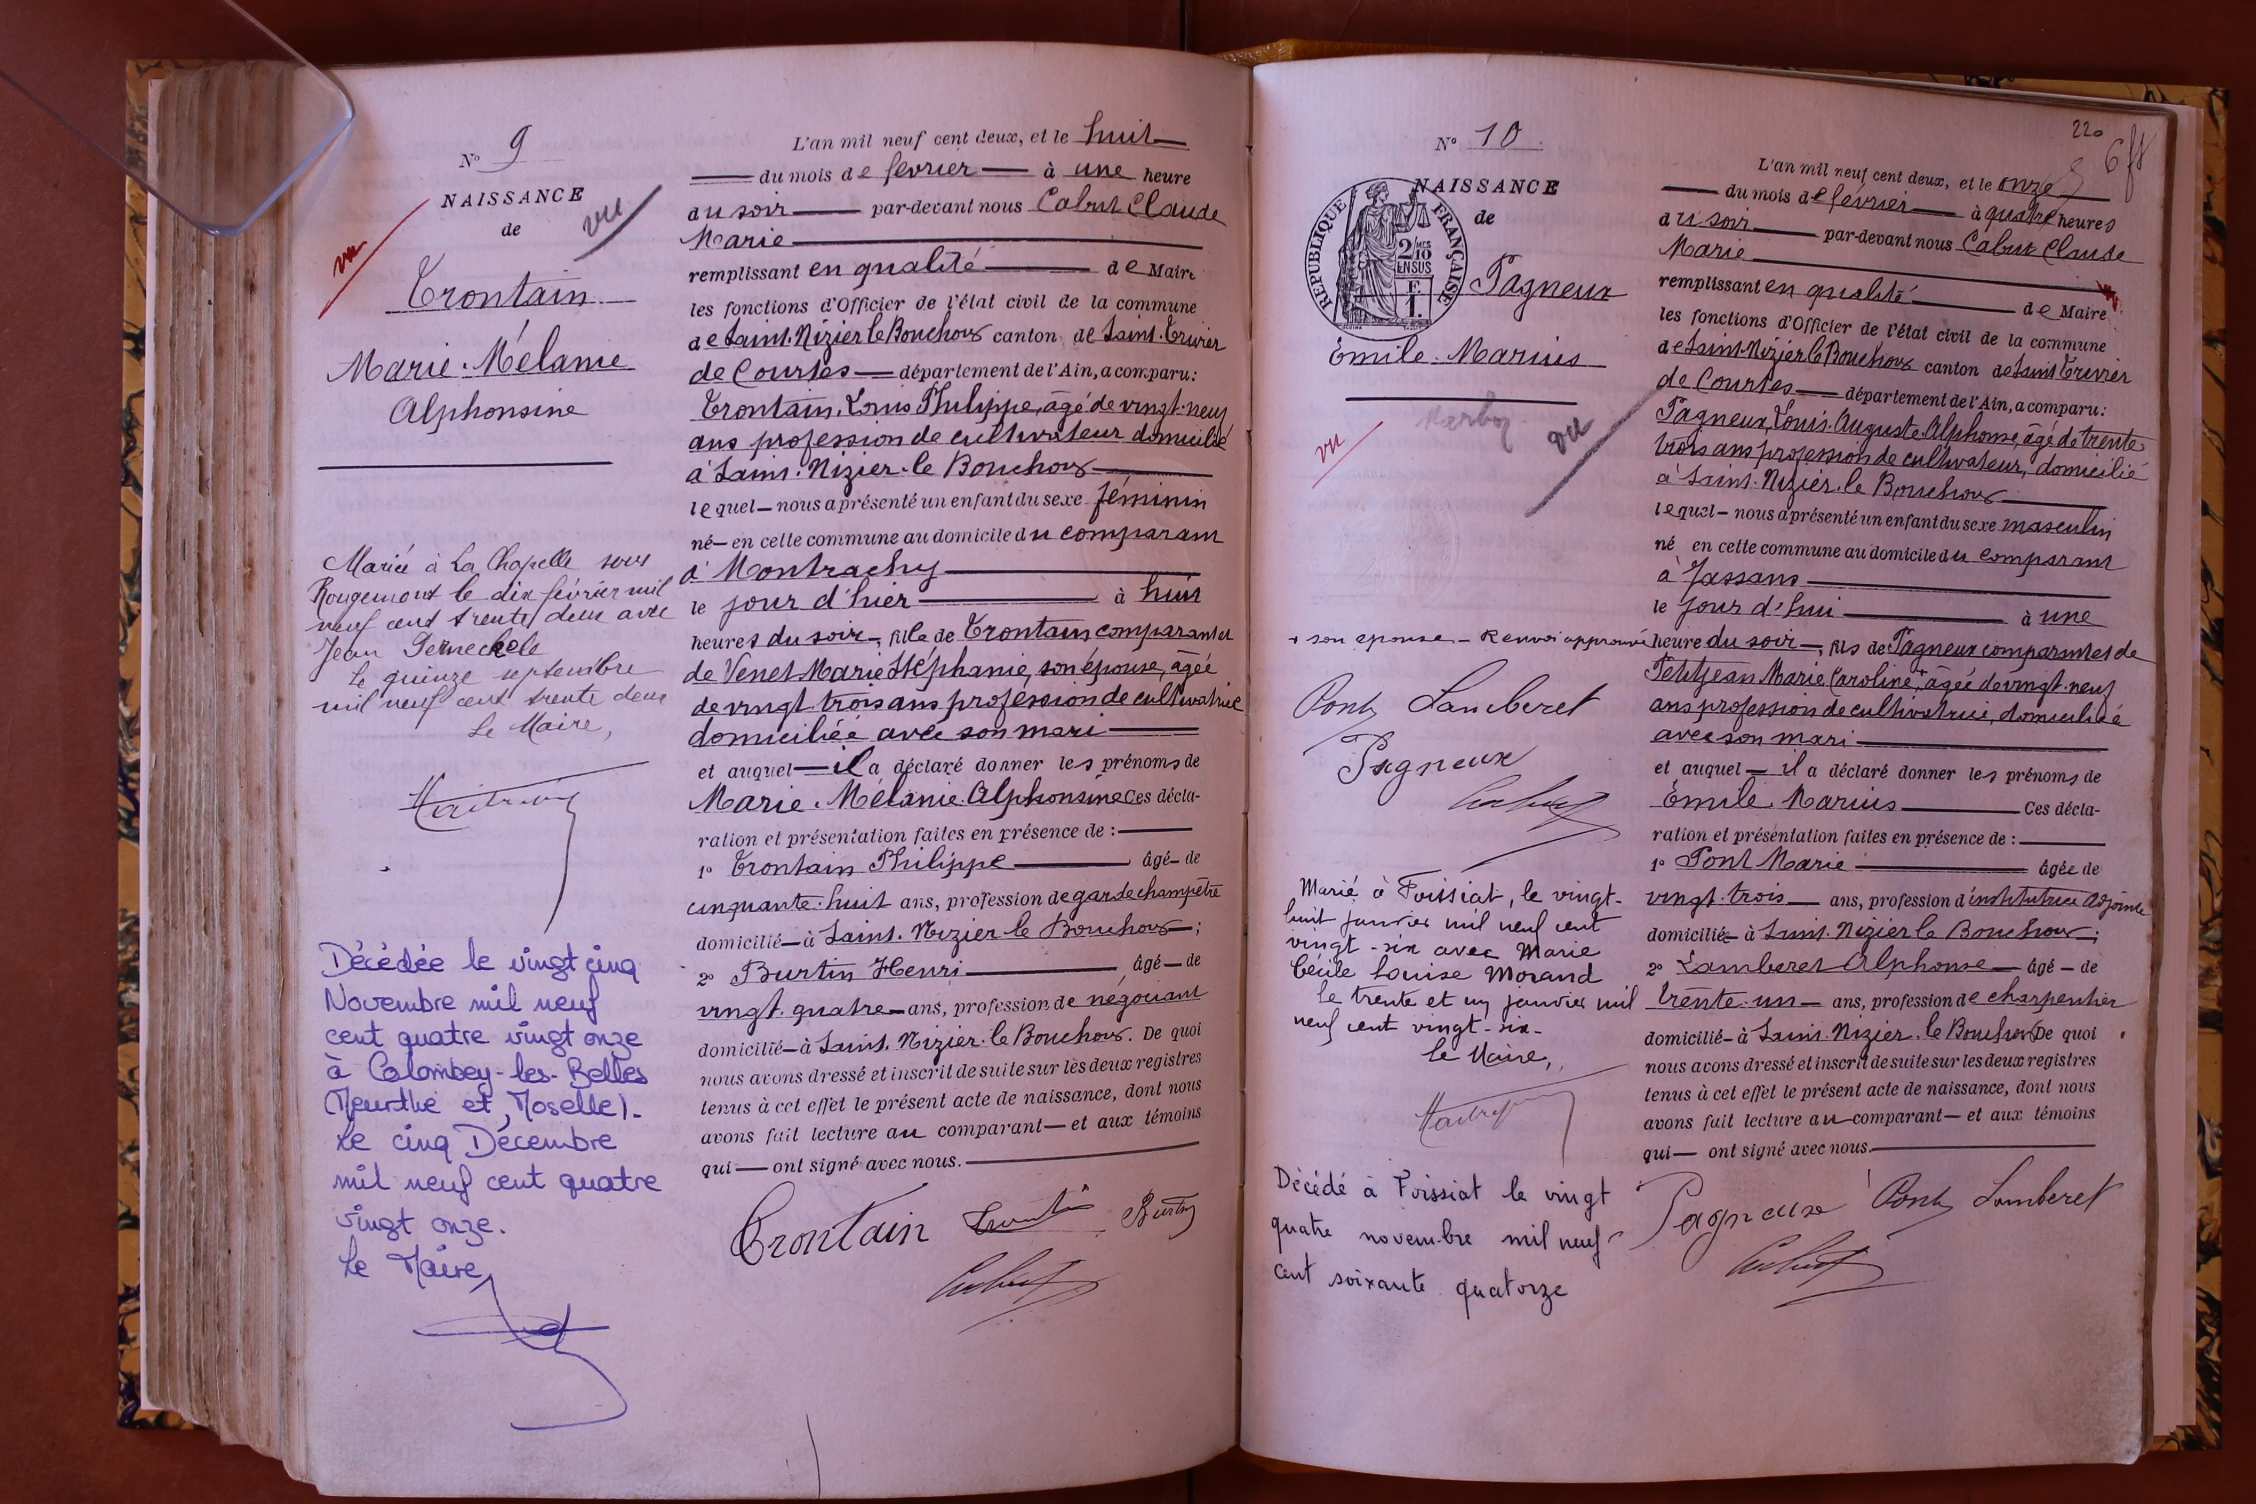 N° 9
NAISSANCE
de
vu
vu
Trontain
Marie. Mélanie
Alphonsine
Mariée à La Chapelle sous
Rougemont le dix février mil
neuf cent trente deux avec
Jean
Le quinze septembre
mil neuf cent trente deux
Le Maire,
Décédée le vingt cinq
Novembre mil neuf
cent quatre vingt onze
à Colombey-les-Belles
(Meurthe et Moselle).
Le cinq Décembre
mil neuf cent quatre
vingt onze.
Le Maire,
L'an mil neuf cent deux, et le huit
du mois de février à une heure
du soir par-devant nous Cabut Claude
Marie
remplissant en qualité de Maire
les fonctions d'Officier de l'état civil de la commune
de Saint. Nizier le Bouchoux canton de Saint. Trivier
de Courtes département de l'Ain, a comparu:
Trontain, Louis Philippe, âgé de vingt. neuf
ans profession de cultivateur domicilié
à Saint. Nizier. le Bouchoux
lequel nous a présenté un enfant du sexe féminin
né en cette commune au domicile du comparant
à Montrachy
le jour d'hier à huit
heures du soir, fille de Trontain comparant et
de Venet Marie Stéphanie, son épouse, âgée
de vingt trois ans profession de cultivatrice
domiciliée avec son mari
et auquel il a déclaré donner les prénoms de
Marie. Mélanie. Alphonsine Ces décla-
ration et présentation faites en présence de :
1° Trontain Philippe âgé de
cinquante. huit ans, profession de garde champêtre
domicilié à Saint. Nizier le Bouchoux ;
2° Burtin Henri âgé de
vingt. quatre ans, profession de négociant
domicilié à Saint. Nizier. le Bouchoux. De quoi
nous avons dressé et inscrit de suite sur les deux registres
tenus à cet effet le présent acte de naissance, dont nous
avons fait lecture au comparant et aux témoins
qui ont signé avec nous.
Trontain Trontain Burtin
Cabut
220
6 ff
N° 10
NAISSANCE
de
REPUBLIQUE FRANÇAISE
2/10
EN SUS
F.
1.
Pagneux
Emile. Marius
Marboz
vu
vu
+ son épouse - Renvoi approuvé
Pont Lamberet
Pagneux
Cabut
Marié à Foissiat, le vingt-
huit janvier mil neuf cent
vingt-six avec Marie
Cécile Louise Morand
le trente et un janvier mil
neuf cent vingt-six-
Le Maire,
Décédé à Foissiat le vingt
quatre novembre mil neuf
cent soixante quatorze
L'an mil neuf cent deux, et le onze
du mois de février à quatre heures
du soir par-devant nous Cabut Claude
Marie
remplissant en qualité de Maire
les fonctions d'Officier de l'état civil de la commune
de Saint-Nizier le Bouchoux canton de Saint Trivier
de Courtes département de l'Ain, a comparu:
Pagneux, Louis. Auguste. Alphonse, âgé de trente
trois ans profession de cultivateur, domicilié
à Saint. Nizier. le Bouchoux
lequel nous a présenté un enfant du sexe masculin
né en cette commune au domicile du comparant
à Jassans
le jour d'hui à une
heure du soir, fils de Pagneux comparant et de
Petitjean Marie Caroline+, âgée de vingt. neuf
ans profession de cultivatrice, domiciliée
avec son mari
et auquel il a déclaré donner les prénoms de
Emile. Marius Ces décla-
ration et présentation faites en présence de :
1° Pont Marie âgée de
vingt. trois ans, profession d'institutrice adjointe
domiciliée à Saint. Nizier le Bouchoux ;
2° Lamberet Alphonse âgé de
trente. un ans, profession de charpentier
domicilié à Saint. Nizier. le Bouchoux De quoi
nous avons dressé et inscrit de suite sur les deux registres
tenus à cet effet le présent acte de naissance, dont nous
avons fait lecture au comparant et aux témoins
qui ont signé avec nous.
Pagneux Pont Lamberet
Cabut